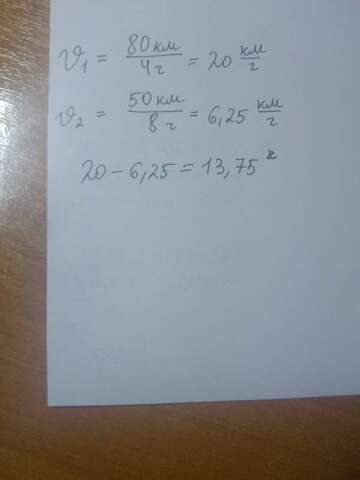 υ₁ = 80км/4г = 20 км/г
υ₂ = 50км/8г = 6,25 км/г
20 - 6,25 = 13,75